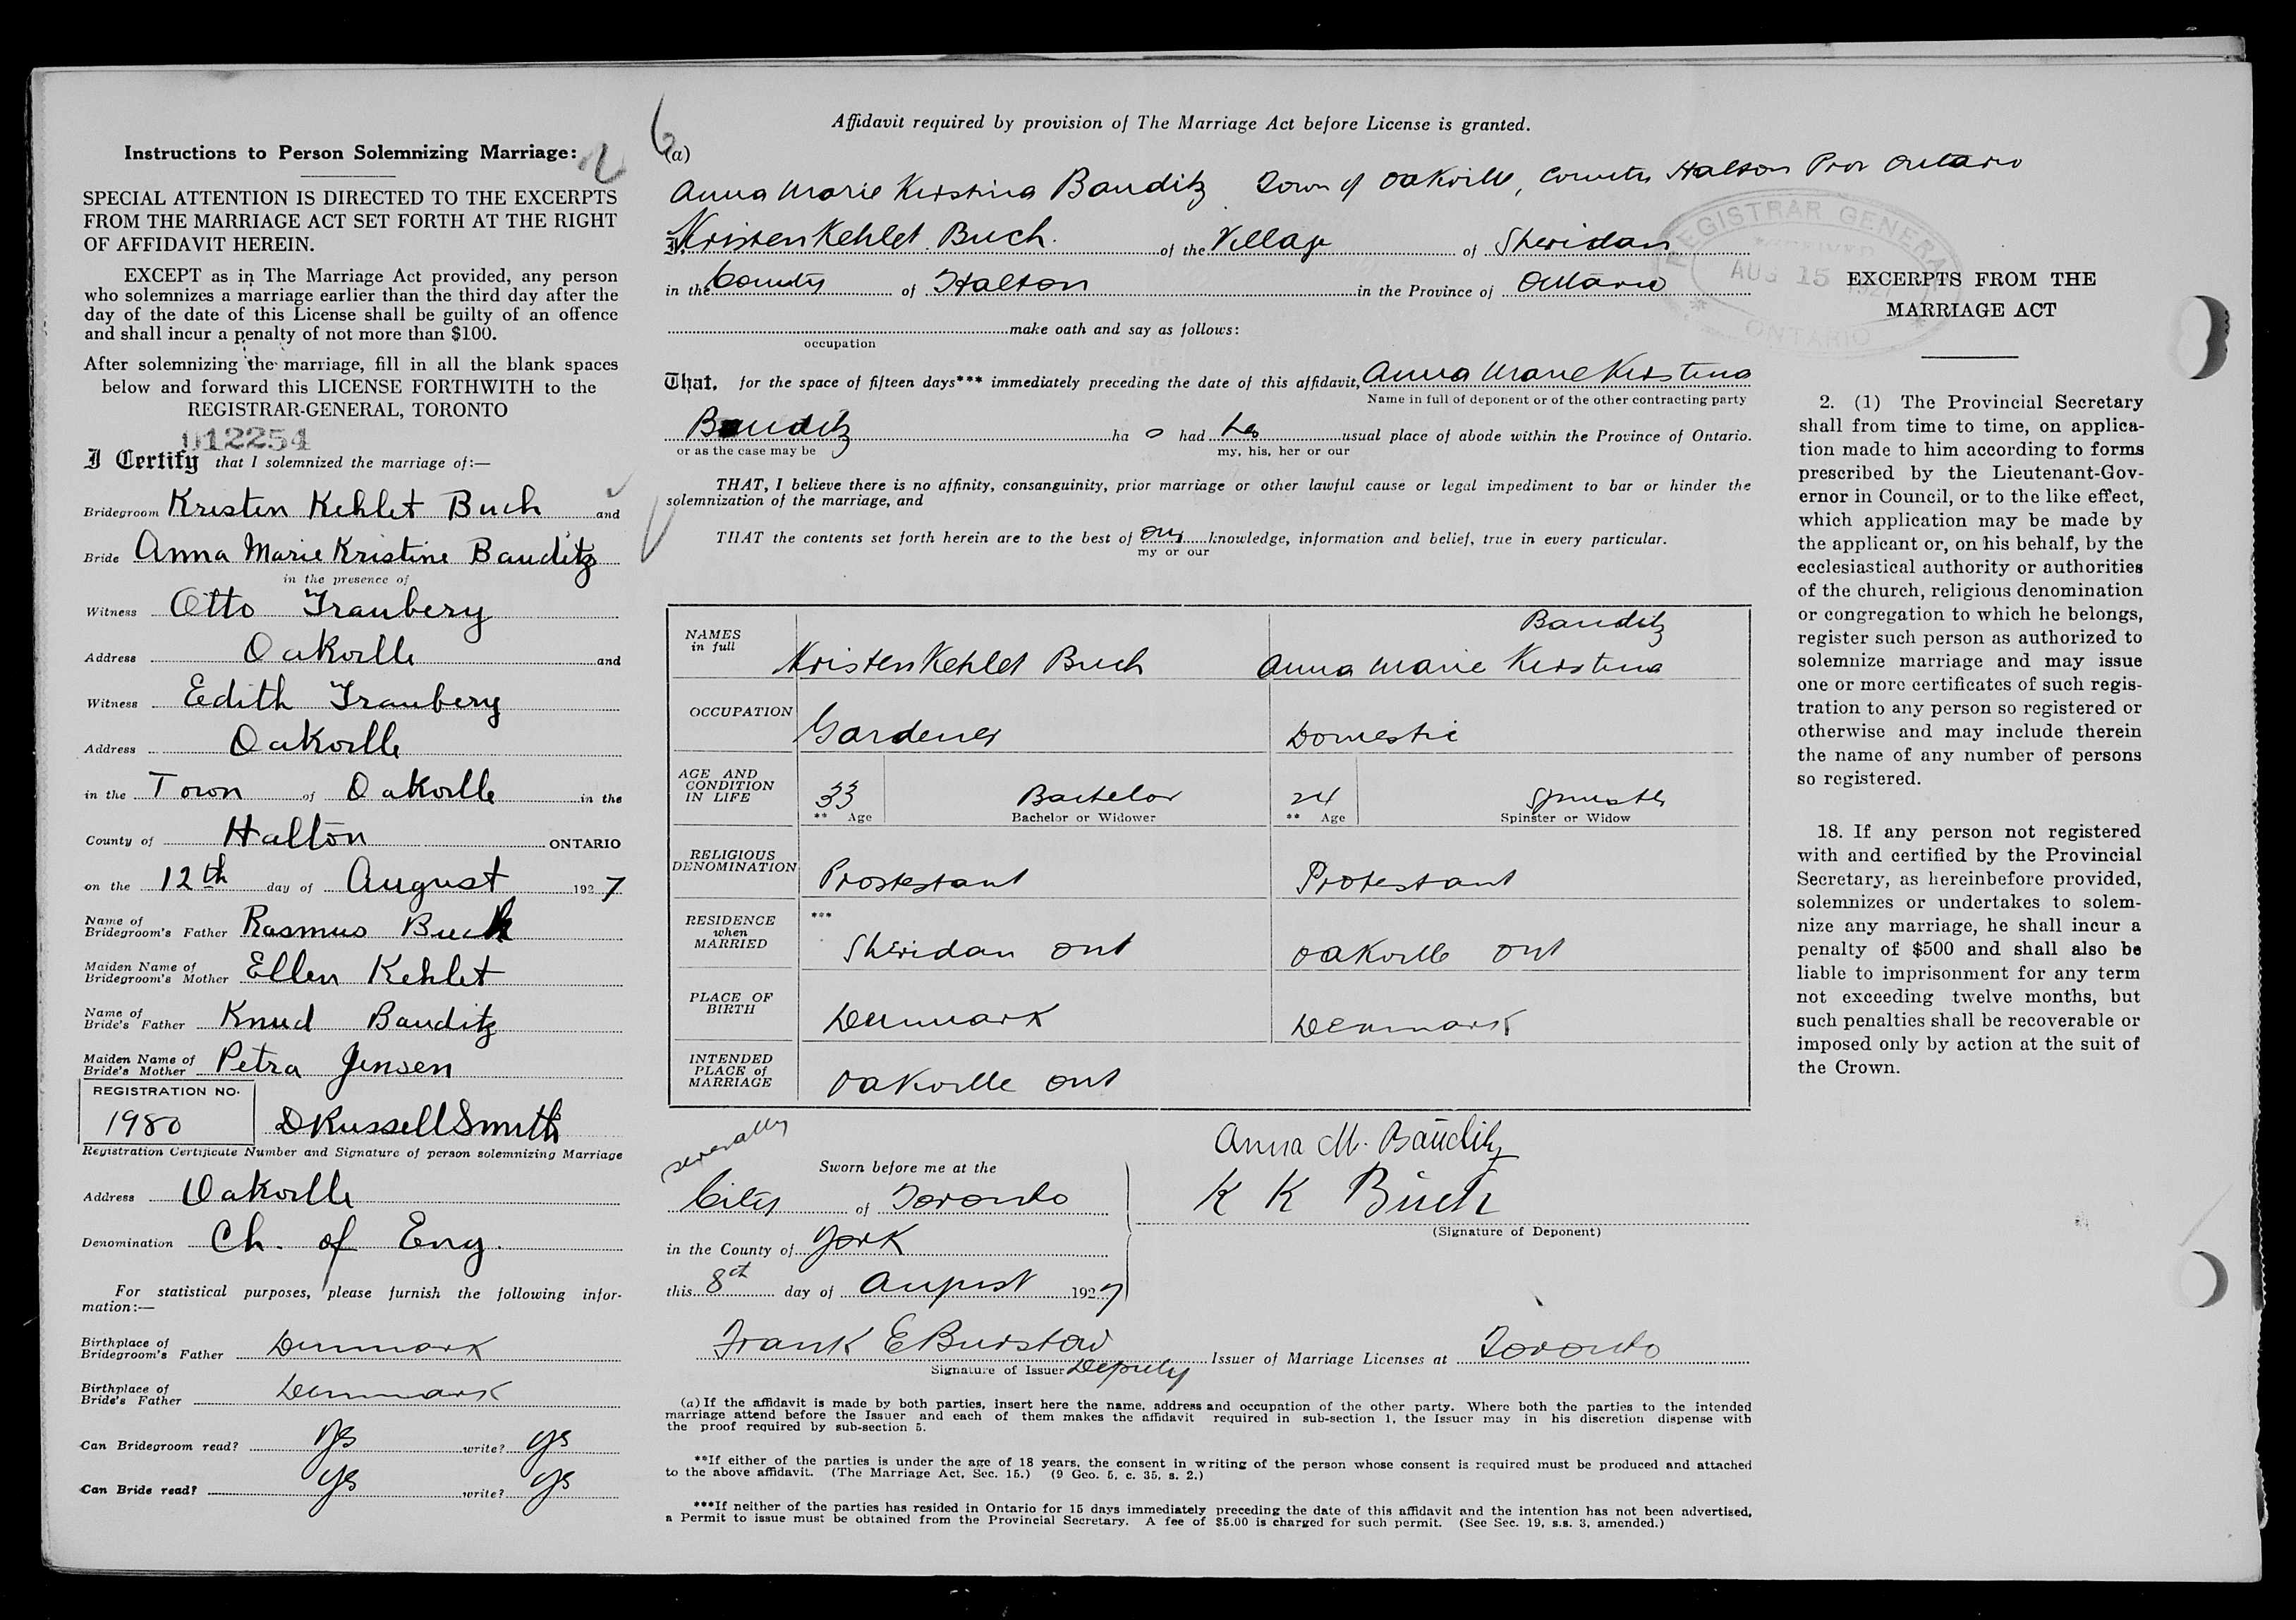 Instructions to Person Solemnizing Marriage:
SPECIAL ATTENTION IS DIRECTED TO THE EXCERPTS
FROM THE MARRIAGE ACT SET FORTH AT THE RIGHT
OF AFFIDAVIT HEREIN.
EXCEPT as in The Marriage Act provided, any person
who solemnizes a marriage earlier than the third day after the
day of the date of this License shall be guilty of an offence
and shall incur a penalty of not more than $100.
After solemnizing the marriage, fill in all the blank spaces
below and forward this LICENSE FORTHWITH to the
REGISTRAR-GENERAL, TORONTO
012254
I Certify that I solemnized the marriage of:—
Bridegroom Kristen Kehlet Buch and
Bride Anna Marie Kristine Bauditz
in the presence of
Witness Otto Tranberg
Address Oakville and
Witness Edith Tranberg
Address Oakville
in the Town of Oakville in the
County of Halton ONTARIO
on the 12th day of August 1927
Name of
Bridegroom's Father Rasmus Buch
Maiden Name of
Bridegroom's Mother Ellen Kehlet
Name of
Bride's Father Knud Bauditz
Maiden Name of
Bride's Mother Petra Jensen
REGISTRATION NO.
1980 D Russell Smith
Registration Certificate Number and Signature of person solemnizing Marriage
Address Oakville
Denomination Ch. of Eng.
For statistical purposes, please furnish the following infor-
mation:—
Birthplace of
Bridegroom's Father Denmark
Birthplace of
Bride's Father Denmark
Can Bridegroom read? yes write? yes
Can Bride read? yes write? yes
6
Affidavit required by provision of The Marriage Act before License is granted.
(a)
Anna Marie Kirstina Bauditz Town of Oakville, County Halton Prov Ontario
I, Kristen Kehlet Buch of the Village of Sheridan
in the County of Halton in the Province of Ontario
make oath and say as follows:
occupation
That, for the space of fifteen days*** immediately preceding the date of this affidavit, Anna Marie Kirstina
Name in full of deponent or of the other contracting party
Bauditz ha s had her usual place of abode within the Province of Ontario.
or as the case may be my, his, her or our
THAT, I believe there is no affinity, consanguinity, prior marriage or other lawful cause or legal impediment to bar or hinder the
solemnization of the marriage, and
THAT the contents set forth herein are to the best of our knowledge, information and belief, true in every particular.
my or our
Bauditz
NAMES
in full
Kristen Kehlet Buch Anna Marie Kirstina
OCCUPATION
Gardener Domestic
AGE AND
CONDITION
IN LIFE
33 Bachelor 24 Spinster
** Age Bachelor or Widower ** Age Spinster or Widow
RELIGIOUS
DENOMINATION
Prostestant Protestant
RESIDENCE
when
MARRIED
***
Sheridan Ont Oakville Ont
PLACE OF
BIRTH
Denmark Denmark
INTENDED
PLACE of
MARRIAGE
Oakville Ont
severally
Sworn before me at the
City of Toronto
in the County of York
this 8th day of August 1927
Anna M. Bauditz
K K Buch
(Signature of Deponent)
Frank E Burstow Issuer of Marriage Licenses at Toronto
Signature of Issuer Deputy
(a) If the affidavit is made by both parties, insert here the name, address and occupation of the other party. Where both the parties to the intended
marriage attend before the Issuer and each of them makes the affidavit required in sub-section 1, the Issuer may in his discretion dispense with
the proof required by sub-section 5.
**If either of the parties is under the age of 18 years, the consent in writing of the person whose consent is required must be produced and attached
to the above affidavit. (The Marriage Act, Sec. 15.) (9 Geo. 5, c. 35, s. 2.)
***If neither of the parties has resided in Ontario for 15 days immediately preceding the date of this affidavit and the intention has not been advertised,
a Permit to issue must be obtained from the Provincial Secretary. A fee of $5.00 is charged for such permit. (See Sec. 19, s.s. 3, amended.)
REGISTRAR GENERAL
RECEIVED
AUG 15 1927
ONTARIO
EXCERPTS FROM THE
MARRIAGE ACT
2. (1) The Provincial Secretary
shall from time to time, on applica-
tion made to him according to forms
prescribed by the Lieutenant-Gov-
ernor in Council, or to the like effect,
which application may be made by
the applicant or, on his behalf, by the
ecclesiastical authority or authorities
of the church, religious denomination
or congregation to which he belongs,
register such person as authorized to
solemnize marriage and may issue
one or more certificates of such regis-
tration to any person so registered or
otherwise and may include therein
the name of any number of persons
so registered.
18. If any person not registered
with and certified by the Provincial
Secretary, as hereinbefore provided,
solemnizes or undertakes to solem-
nize any marriage, he shall incur a
penalty of $500 and shall also be
liable to imprisonment for any term
not exceeding twelve months, but
such penalties shall be recoverable or
imposed only by action at the suit of
the Crown.